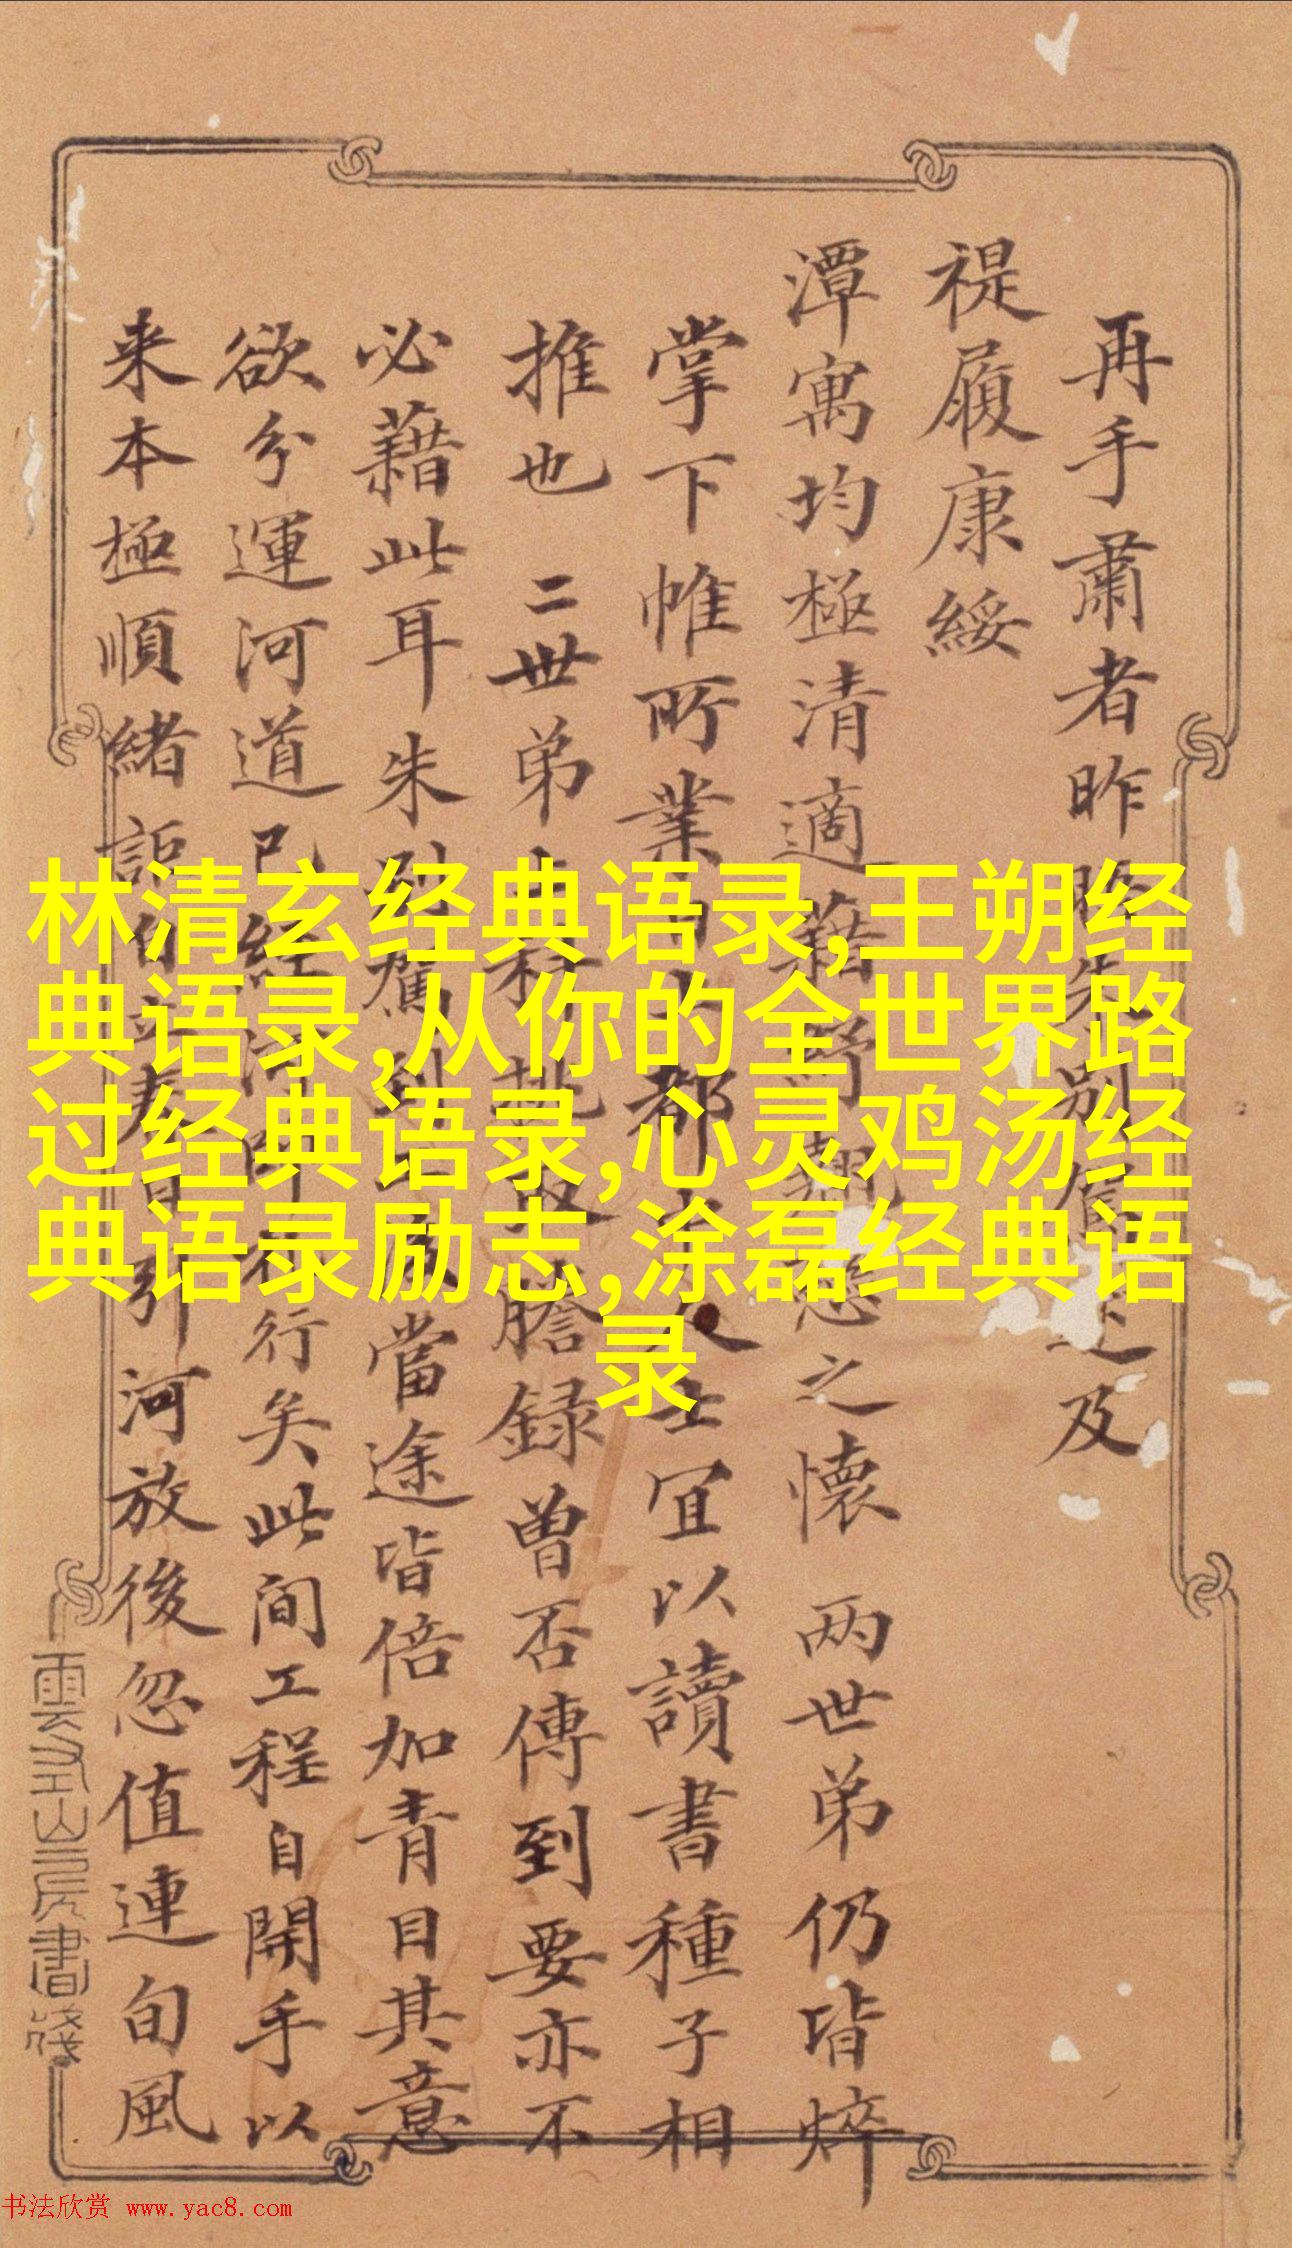 再手肅者昨
及
禔履康綏
潭寓均極清適藉
之懷 两世弟仍皆焠
掌下帷所業
都
士宜以讀書種子相
推也 二世弟
謄録曾否傳到要亦不
必藉此耳朱
駕到
當途皆倍加青目其意
欲分運河道已經
行矣此间工程自開手以
来本極順緒詎
春
引河放後忽值連旬風
雲山房書箋
林清玄经典语录,王朔经
典语录,从你的全世界路
过经典语录,心灵鸡汤经
典语录励志,涂磊经典语
录
书法欣赏 www.yac8.com